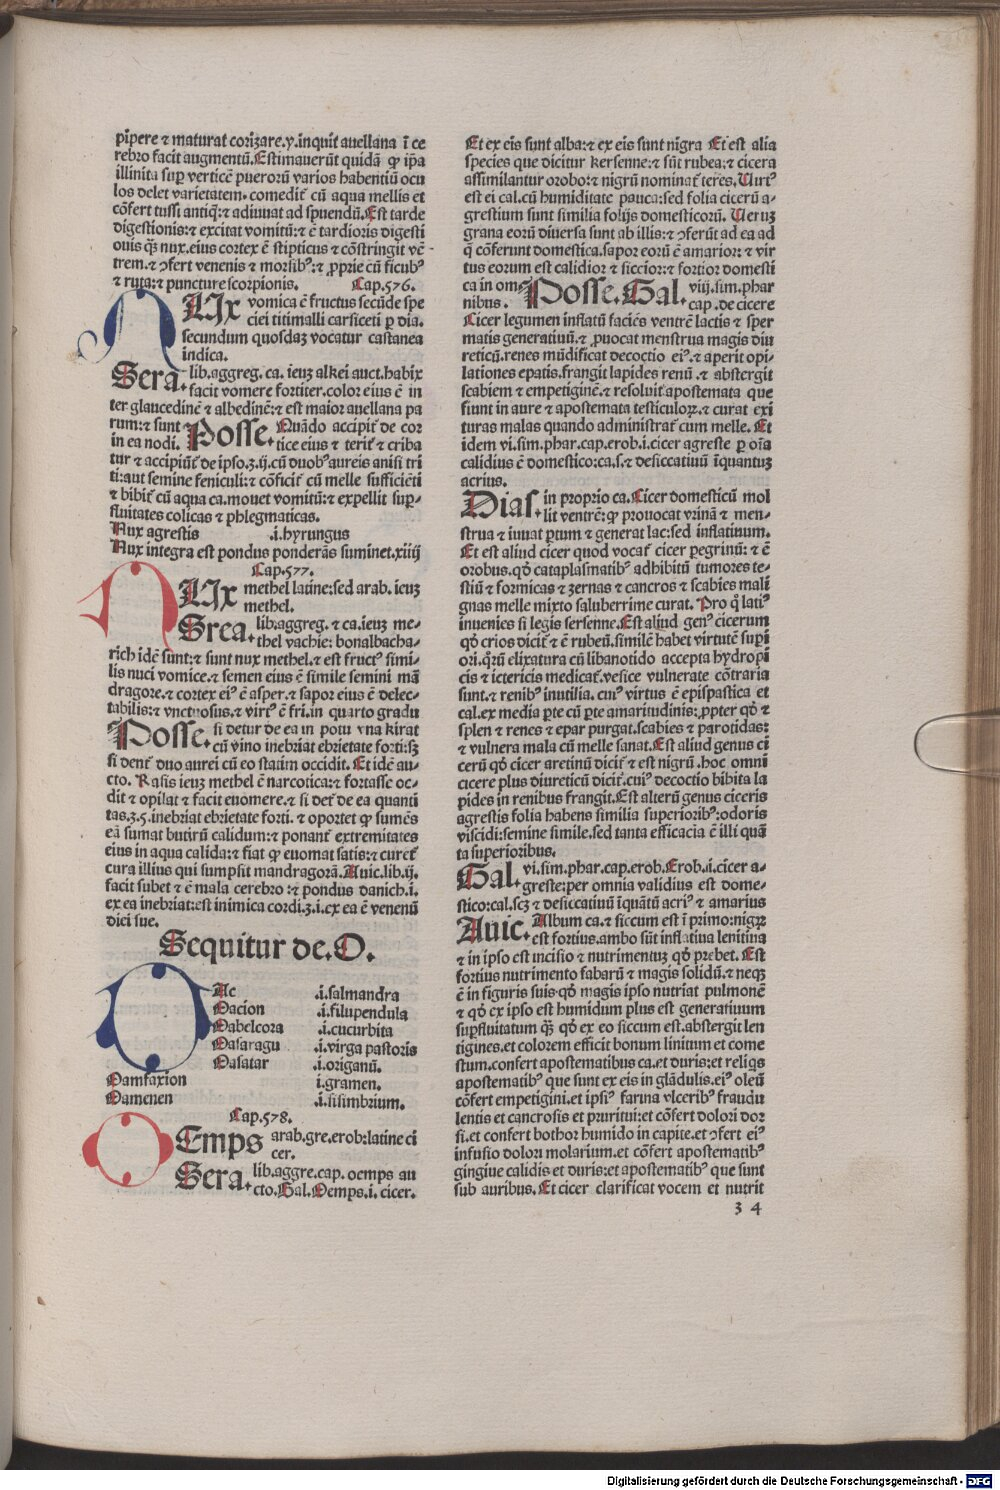 pipere ⁊ maturat corizare.y.inquit auellana ī ce
rebro facit augmentū.Estimauerūt quidā ꝙ ip̄a
illinita sup̱ verticē puerorū varios habentiū ocu
los delet varietatem. comedit̄ cū aqua mellis et
cōfert tussi antiq̄:⁊ adiuuat ad spuendū.Est tarde
digestionis:⁊ excitat vomitū:⁊ ē tardioris digesti
ouis q̄ꝫ nux.eius cortex ē stipticus ⁊ cōstringit vē
trem.⁊ ꝯfert venenis ⁊ morsibꝰ:⁊ ꝓprie cū ficubꝰ
⁊ ruta:⁊ puncture scorpionis. Cap.576.
NUx vomica ē fructus secūde spe
ciei titimalli carsiceti ꝑ dia.
secundum quosdaꝫ vocatur castanea
indica.
Sera. lib.aggreg. ca. ieuꝫ alkei auct.habix
facit vomere fortiter.color eius ē in
ter glaucedinē ⁊ albedinē:⁊ est maior auellana pa
rum:⁊ sunt Posse. Quādo accipit̄ de cor
in ea nodi. tice eius ⁊ terit̄ ⁊ criba
tur ⁊ accipiūt̄ de ipso.ʒ.ij.cū duobꝰ aureis anisi tri
ti:aut semine feniculi:⁊ cōficit̄ cū melle sufficiēti
⁊ bibit̄ cū aqua ca.mouet vomitū:⁊ expellit sup̱-
fluitates colicas ⁊ phlegmaticas.
Nux agrestis .i.hyrungus
Nux integra est pondus ponderās suminet.xiiij
Cap.577.
NUx methel latine:sed arab. ieuꝫ
methel.
Srea. lib.aggreg. ⁊ ca.ieuꝫ me-
thel vachie: bonalbacha-
rich idē sunt:⁊ sunt nux methel.⁊ est fructꝰ simi-
lis nuci vomice.⁊ semen eius ē simile semini mā
dragore.⁊ cortex eiꝰ ē asper.⁊ sapor eius ē delec-
tabilis:⁊ vnctuosus.⁊ virtꝰ ē fri.in quarto gradu
Posse. si detur de ea in potu vna kirat
cū vino inebriat ebrietate forti:sꝫ
si dent̄ duo aurei cū eo statim occidit. Et idē au-
cto. Rasis ieuꝫ methel ē narcotica:⁊ fortasse oc-
dit ⁊ opilat ⁊ facit euomere.⁊ si det̄ de ea quanti
tas.ʒ.5.inebriat ebrietate forti. ⁊ oportet ꝙ sumēs
eā sumat butirū calidum:⁊ ponant̄ extremitates
eius in aqua calida:⁊ fiat ꝙ euomat satis:⁊ curet̄
cura illius qui sumpsit mandragorā. Auic.lib.ij.
facit subet ⁊ ē mala cerebro :⁊ pondus danich.i.
ex ea inebriat:est inimica cordi.ʒ.i.ex ea ē venenū
dici sue.
Sequitur de.O.
OAc .i.salmandra
Oacion .i.filupendula
Oabelcora .i.cucurbita
Oasaragu .i.virga pastoris
Oasatar .i.origanū.
Oamfaxion i.gramen.
Oamenen .i.sisimbrium.
Cap.578.
OEmps arab.gre.erob:latine ci
cer.
Sera. lib.aggre.cap. oemps au
cto.Gal.Oemps.i. cicer.
Et ex eis sunt alba:⁊ ex eis sunt nigra Et est alia
species que dicitur kersenne:⁊ sūt rubea:⁊ cicera
assimilantur orobo:⁊ nigrū nominat̄ teres.Uirtꝰ
est ei cal.cū humiditate pauca:sed folia cicerū a-
grestium sunt similia folijs domesticorū. Ueruꝫ
grana eorū diuersa sunt ab illis:⁊ ꝯferūt ad ea ad
q̄ cōferunt domestica.sapor eorū ē amarior: ⁊ vir
tus eorum est calidior ⁊ siccior:⁊ fortior domesti
ca in om- Posse.Gal. viij.sim.phar
nibus. cap .de cicere
Cicer legumen inflatū faciēs ventrē lactis ⁊ sper
matis generatiuū.⁊ ꝓuocat menstrua magis diu
reticū.renes mūdificat decoctio eiꝰ.⁊ aperit opi-
lationes epatis.frangit lapides renū .⁊ abstergit
scabiem ⁊ empetiginē.⁊ resoluit apostemata que
fiunt in aure ⁊ apostemata testiculoꝝ.⁊ curat exi
turas malas quando administrat̄ cum melle. Et
idem vi.sim.phar.cap.erob.i.cicer agreste ꝑ oīa
calidius ē domestico:ca.s.⁊ desiccatiuū īquantuꝫ
acrius.
Dias. in proprio ca.Cicer domesticū mol
lit ventrē:ꝙ prouocat vrinā ⁊ men-
strua ⁊ iuuat ꝑtum ⁊ generat lac:sed inflatiuum.
Et est aliud cicer quod vocat̄ cicer ꝑegrinū: ⁊ ē
orobus.qđ cataplasmatibꝰ adhibitū tumores te-
stiū ⁊ formicas ⁊ zernas ⁊ cancros ⁊ scabies mali
gnas melle mixto saluberrime curat. Pro qͦ lati
inuenies si legis sersenne.Est aliud genꝰ cicerum
qđ crios dicit̄ ⁊ ē rubeū.similē habet virtutē supi
ori.q̄ꝝ elixatura cū libanotido accepta hydropi
cis ⁊ ictericis medicat̄.vesice vulnerate cōtraria
sunt.⁊ renibꝰ inutilia. cuiꝰ virtus ē epispastica et
cal.ex media ꝑte cū ꝑte amaritudinis:ꝓpter qđ ⁊
splen ⁊ renes ⁊ epar purgat.scabies ⁊ parotidas:
⁊ vulnera mala cū melle sanat.Est aliud genus ci
cerū qđ cicer aretinū dicit̄ ⁊ est nigrū .hoc omni
cicere plus diureticū dicit̄.cuiꝰ decoctio bibita la
pides in renibus frangit.Est alterū genus ciceris
agrestis folia habens similia superioribꝰ:odoris
viscidi:semine simile.sed tanta efficacia ē illi quā
ta superioribus.
Gal. vi.sim.phar.cap.erob.Erob.ii.cicer a-
greste:per omnia validius est dome-
stico:cal.scꝫ ⁊ desiccatiuū īquātū acriꝰ ⁊ amarius
Auic. Album ca.⁊ siccum est ī primo:nigꝝ
est fortius.ambo sūt inflatiua lenitiua
⁊ in ipso est incisio ⁊ nutrimentuꝫ qđ prebet. Est
fortius nutrimento fabarū ⁊ magis solidū.⁊ neqꝫ
ē in figuris suis qđ magis ipso nutriat pulmonē
⁊ qđ ex ipso est humidum plus est generatiuum
sup̱fluitatum q̄ꝫ qđ ex eo siccum est.abstergit len
tigines.et colorem efficit bonum linitum et come
stum.confert apostematibus ca.et duris:et reliqs
apostematibꝰ que sunt ex eis in glādulis.eiꝰ oleū
cōfert empetigini.et ipsiꝰ farina vlceribꝰ fraudu
lentis et cancrosis et pruritui:et cōfert dolori dor
si.et confert bothor humido in capite.et ꝯfert eiꝰ
infusio dolori molarium.et cōfert apostematibꝰ
gingiue calidis et duris:et apostematibꝰ que sunt
sub auribus. Et cicer clarificat vocem et nutrit
3 4
Digitalisierung gefördert durch die Deutsche Forschungsgemeinschaft - DFG